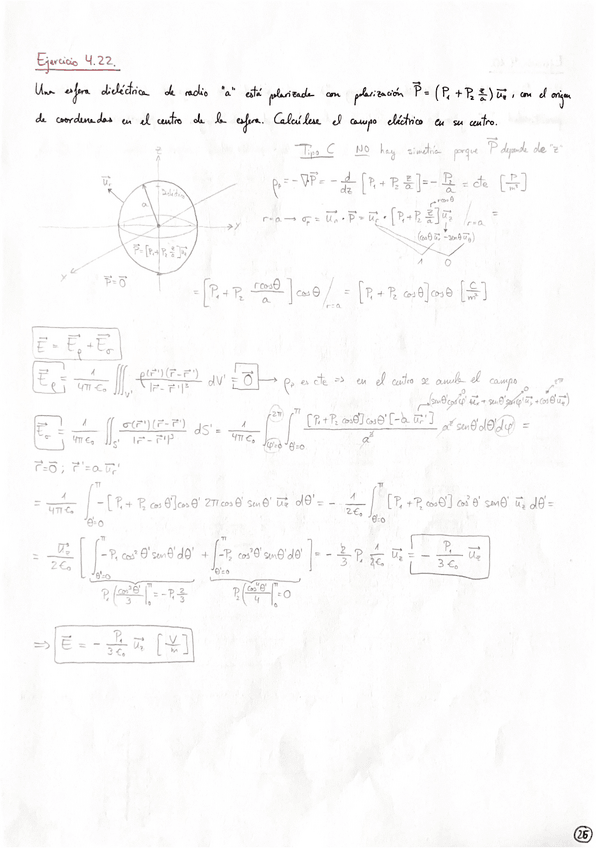 Ejercicio 4.22.
Una esfera dieléctrica de radio "a" está polarizada con polarización P⃗ = (P₁ + P₂ z/a) u⃗z, con el origen
de coordenadas en el centro de la esfera. Calcúlese el campo eléctrico en su centro.
Tipo C NO hay simetría porque P⃗ depende de "z"
ρp = -∇P⃗ = - d/dz [P₁ + P₂ z/a] = - P₂/a = cte
r = a → σp = u⃗r · P⃗ = u⃗r · [P₁ + P₂ z/a] u⃗z / r=a =
rcosθ
(cosθ u⃗r - senθ u⃗θ)
1 0
u⃗r
a
P⃗ = [P₁ + P₂ z/a] u⃗z
P⃗ = 0⃗
x
y
= [P₁ + P₂ rcosθ/a] cosθ / r=a = [P₁ + P₂ cosθ] cosθ [C/m²]
E⃗ = E⃗ρ + E⃗σ
E⃗ρ = 1/4πε₀ ∭V' ρ(r⃗')(r⃗ - r⃗')/|r⃗ - r⃗'|³ dV' = 0⃗ → ρp es cte ⇒ en el centro se anula el campo
(senθ'cosφ' u⃗x + senθ'senφ' u⃗y + cosθ' u⃗z)
E⃗σ = 1/4πε₀ ∬S' σ(r⃗')(r⃗ - r⃗')/|r⃗ - r⃗'|³ dS' = 1/4πε₀ ∫φ'=0^2π ∫θ'=0^π [P₁ + P₂ cosθ'] cosθ' [-a u⃗r']/a³ a² senθ' dθ' dφ' =
r⃗ = 0⃗ ; r⃗' = a u⃗r'
= 1/4πε₀ ∫θ'=0^π -[P₁ + P₂ cosθ'] cosθ' 2π cosθ' senθ' u⃗z dθ' = - 1/2ε₀ ∫θ'=0^π [P₁ + P₂ cosθ'] cos²θ' senθ' u⃗z dθ' =
= u⃗z/2ε₀ [∫θ'=0^π -P₁ cos²θ' senθ' dθ' + ∫θ'=0^π -P₂ cos³θ' senθ' dθ'] = - 2/3 P₁ 1/2ε₀ u⃗z = - P₁/3ε₀ u⃗z
P₁ [cos³θ'/3]₀^π = -P₁ 2/3 P₂ [cos⁴θ'/4]₀^π = 0
⇒ E⃗ = - P₁/3ε₀ u⃗z [V/m]
26